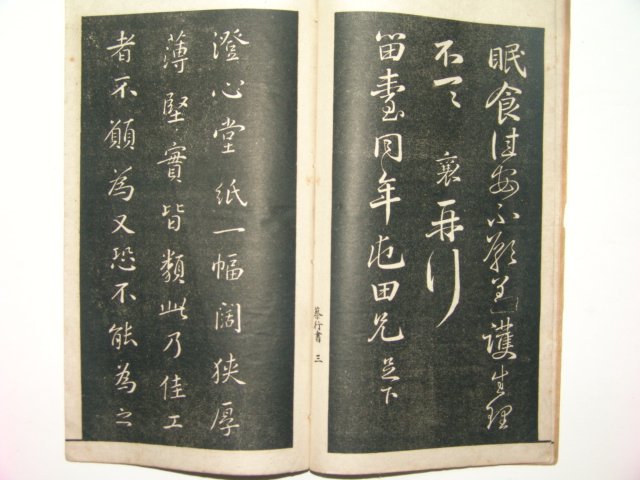 眠食佳安不願護生理
不一一 襄 再拜
留臺同年屯田兄足下
蔡行書 三
澄心堂紙一幅闊狹厚
薄堅實皆類此乃佳工
者不願為又恐不能為之